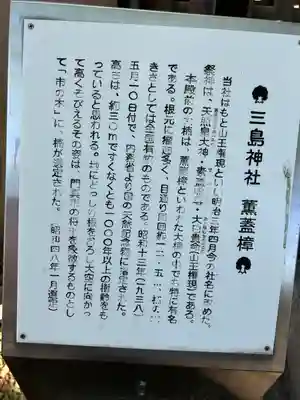 三島神社 薫蓋樟
当社はもと山王権現といい明治三年四月今の社名に改めた。
祭神は、天照皇大神・素盞嗚尊・大日貴命(山王権現)である。
本殿前の大楠は、薫蓋樟といわれ大樟の中でも特に有名
である。根元に瘤多く、目通り周囲約一二・五
きさとしては全国有数のものである。昭和十三年(一九三八)
五月一〇日付で、内務省より国の天然記念物に指定された。
高さは、約三〇mですくなくとも一〇〇〇年以上の樹齢をも
っていると思われる。地にどっしり根をおろし大空に向かっ
て高くそびえるその姿は、門真市の将来を象徴するものとし
て「市の木」に、楠が選定された。(昭和四八年一月選定)